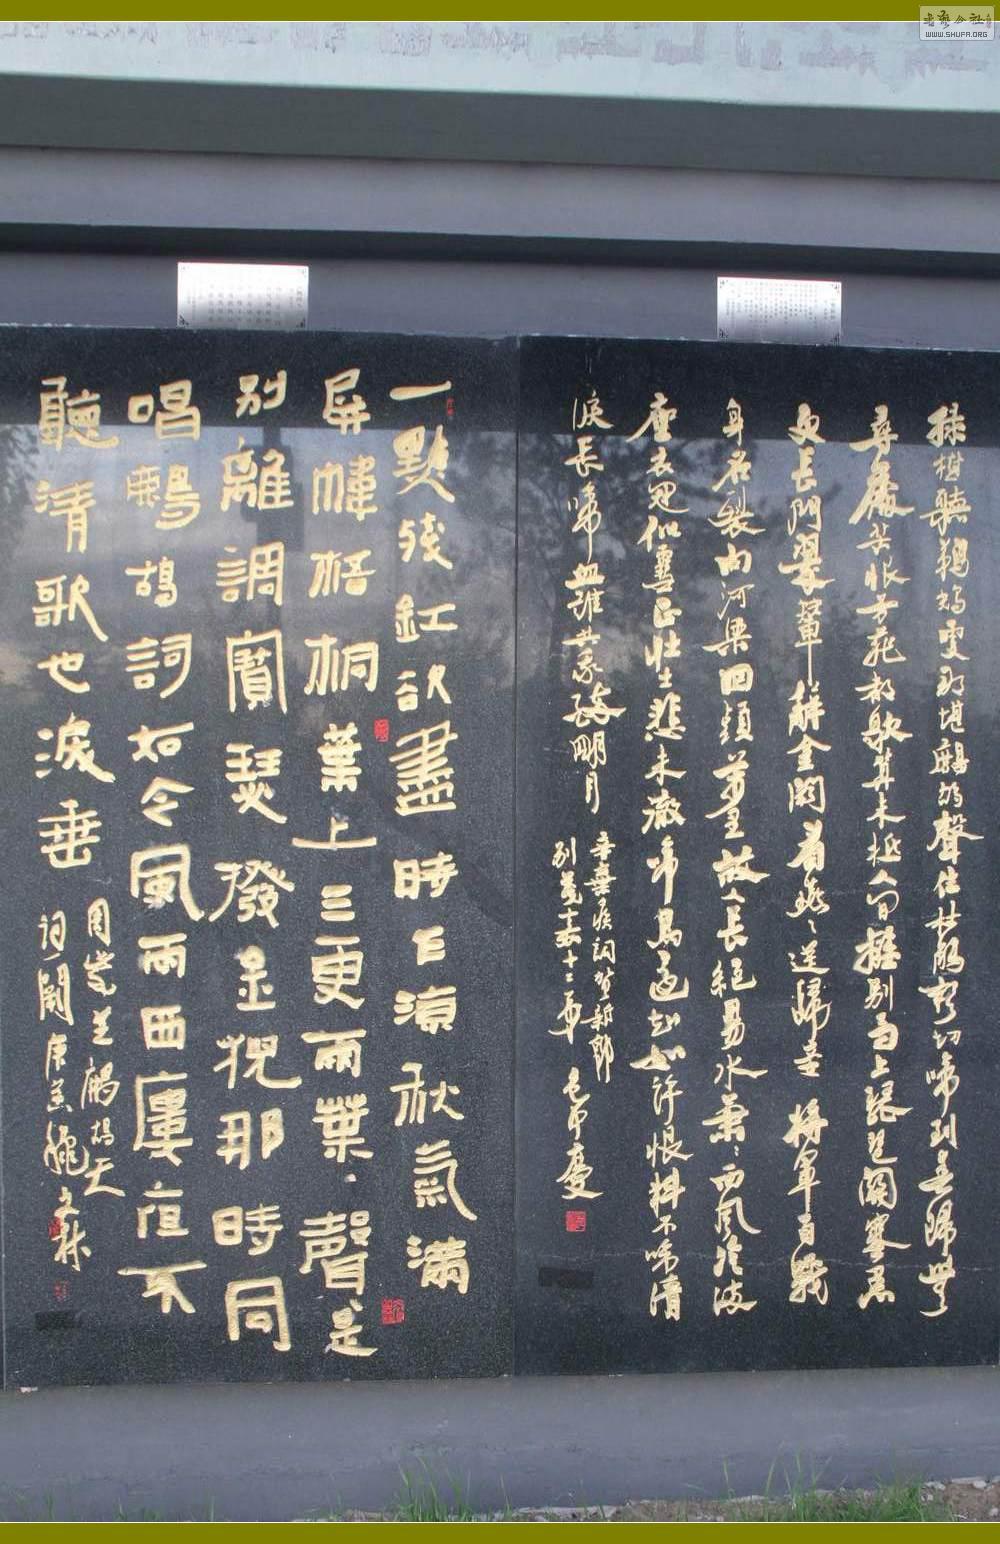 綠樹聽鵜鴂更那堪鷓鴣聲住杜鵑聲切啼到春歸無
尋處苦恨芳菲都歇算未抵人間離別馬上琵琶關塞黑
更長門翠輦辭金闕看燕〻送歸妾 將軍百戰
身名裂向河梁回頭萬里故人長絕易水蕭〻西風冷滿
座衣冠似雪正壯士悲未徹啼鳥還知如許恨料不啼清
淚長啼血誰共我醉明月
辛棄疾詞賀新郎
別茂嘉十二弟
一點殘釭欲盡時乍涼秋氣滿
屏幃梧桐葉上三更雨葉〻聲是
別離調寶瑟撥金猊那時同
唱鷓鴣詞如今風雨西樓夜不
聽清歌也淚垂
周紫芝鷓鴣天
詞
WWW.SHUFA.ORG